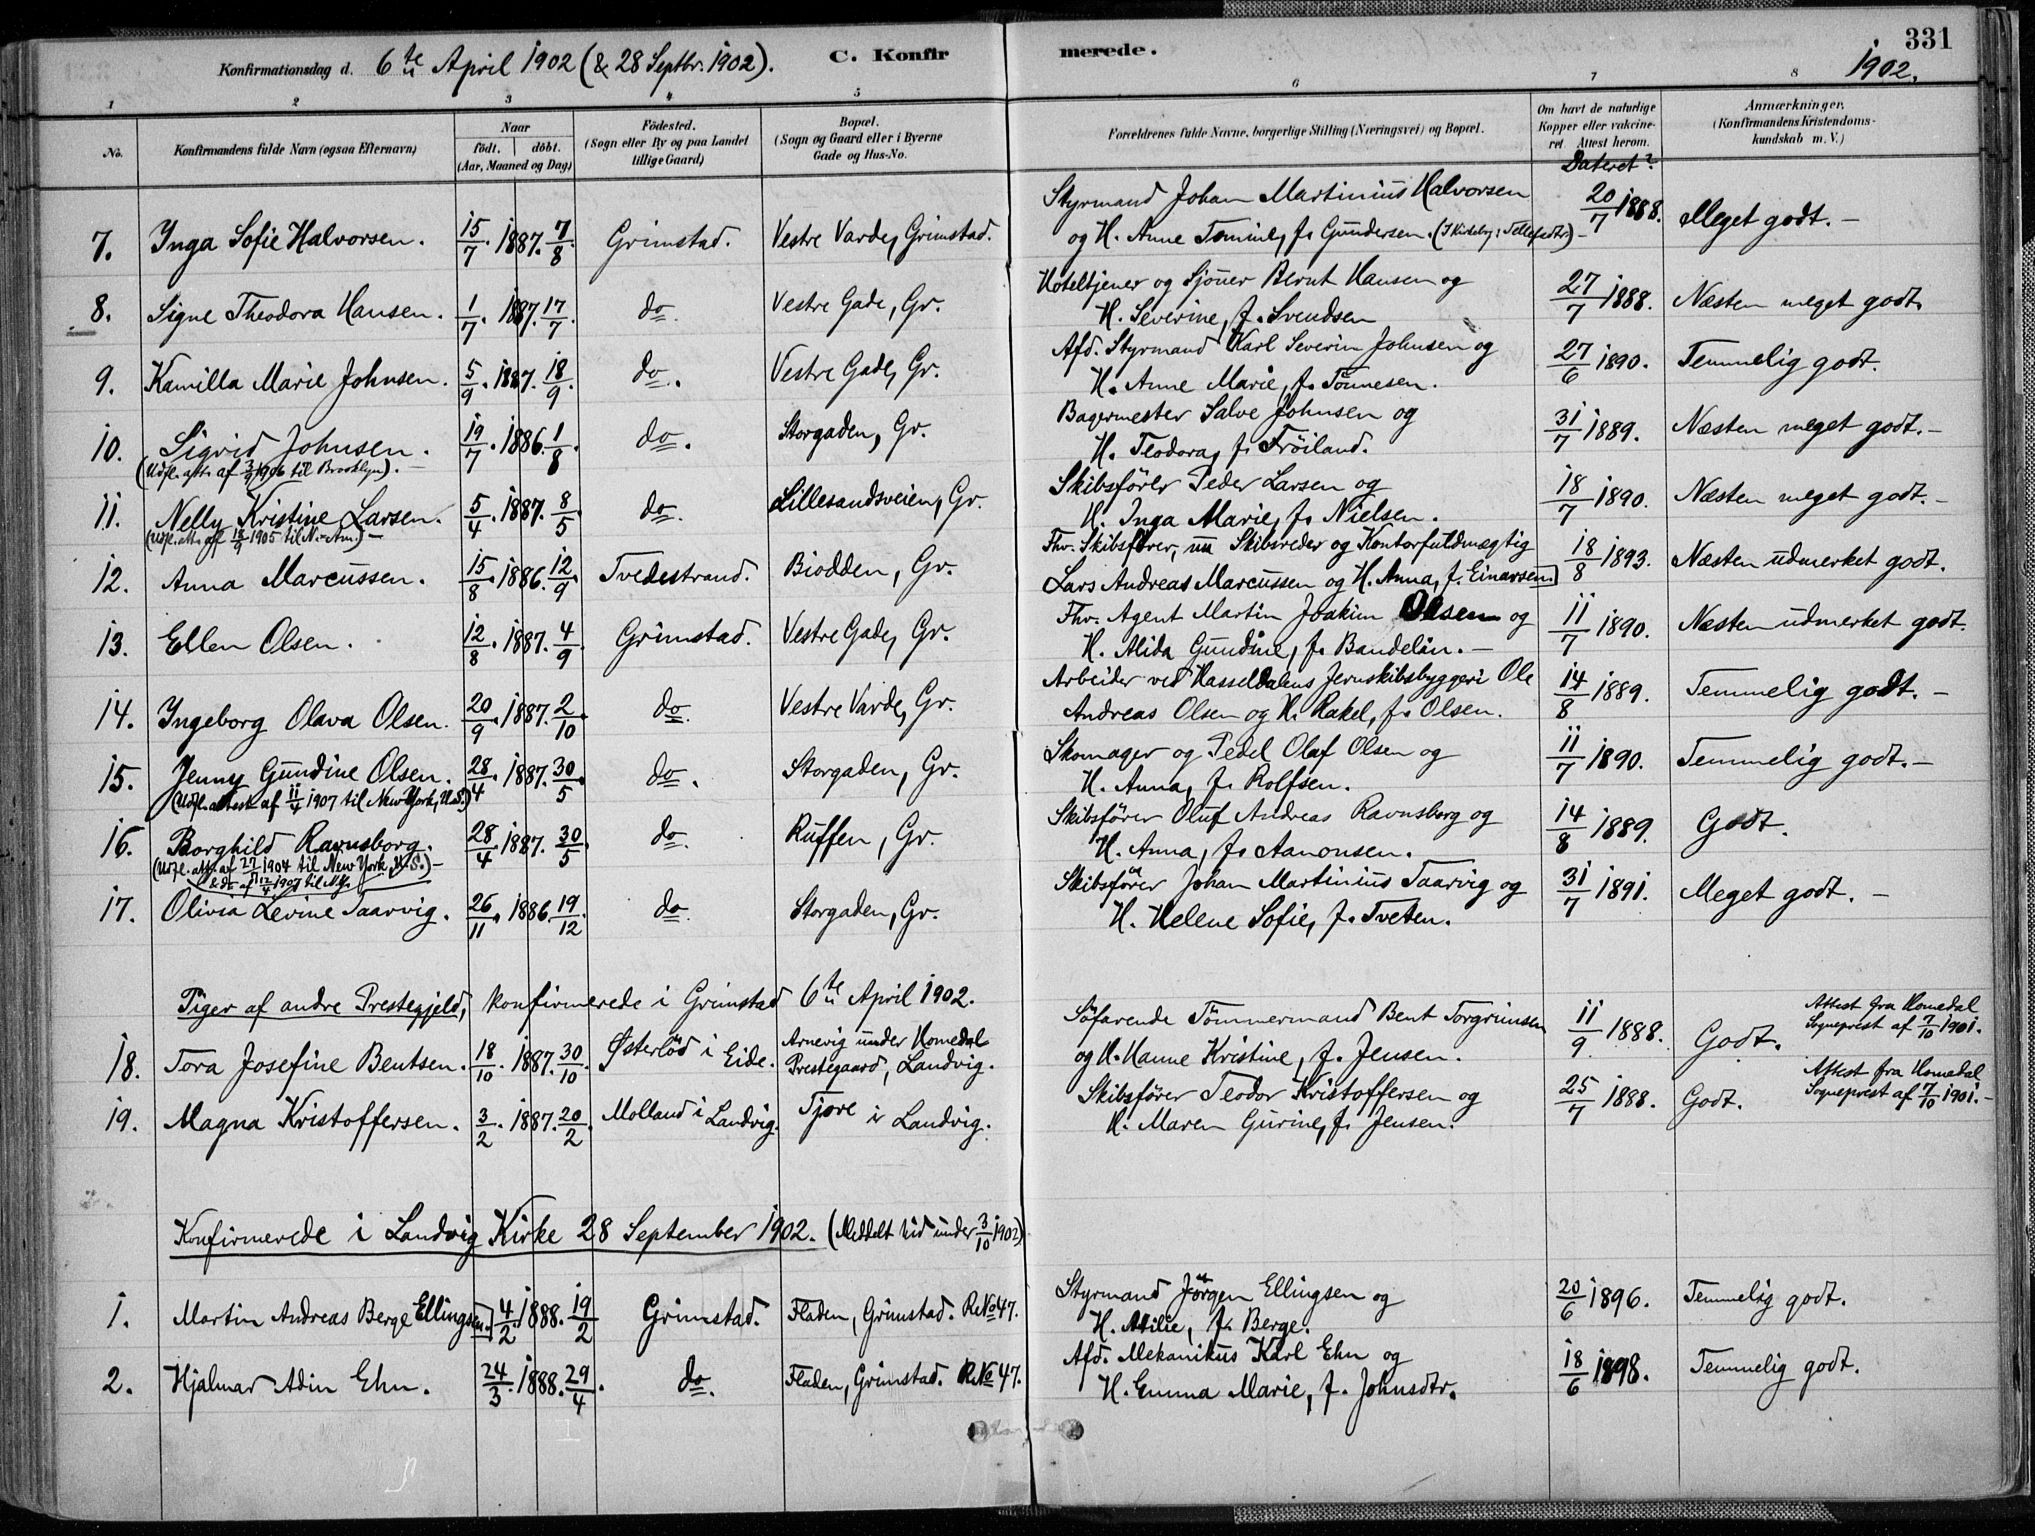 331
Konfirmationsdag d. 6te April 1902 (& 28 Septbr. 1902). C. Konfirmerede. 1902.
1 2 3 4 5 6 7 8
No. Konfirmandens fulde Navn (ogsaa Efternavn) Naar født. døbt. (Aar, Maaned og Dag) Fødested. (Sogn eller By og paa Landet tillige Gaard) Bopæl. (Sogn og Gaard eller i Byerne Gade og Hus-No. Forældrenes fulde Navne, borgerlige Stilling (Næringsvei) og Bopæl. Om havt de naturlige Kopper eller vakcineret. Attest herom. Dateret? Anmærkninger. (Konfirmandens Kristendomskundskab m. V.)
7. Inga Sofie Halvorsen. 15/7. 1887. 7/8 Grimstad. Vestre Varde, Grimstad. Styrmand Johan Martinius Halvorsen 20/7 1888. Meget godt. –
og H. Anne Tomine, f. Gundersen.
8. Signe Theodora Hansen. 1/7. 1887. 17/7. do. Vestre Gade, Gr. Hoteltjener og Sjouer Bernt Hansen og 27/7 1888. Næsten meget godt.
H. Severine, f. Svendsen
9. Kamilla Marie Johnsen. 5/9. 1887. 18/9. do. Vestre Gade, Gr. Afd. Styrmand Karl Severin Johnsen og 27/6 1890. Temmelig godt.
H. Anne Marie, f. Tönnesen.
10. Sigrid Johnsen. 19/7. 1886. 1/8 do. Storgaden, Gr. Bagermester Salve Johnsen og 31/7 1889. Næsten meget godt. –
(Udfl. att. af 3/3 1906 til Brooklyn). – H. Teodora, f. Fröiland.
11. Nelly Kristine Larsen. 5/4. 1887. 8/5. do. Lillesandsveien, Gr. Skibsförer Peder Larsen og 18/7 1890. Næsten meget godt. –
(Udfl. att. af 15/9 1905 til N.-Am.) – H. Inga Marie, f. Nielsen.
12. Anna Marcussen. 15/8. 1886. 12/9. Tvedestrand. Biodden, Gr. Fhv. Skibsförer, nu Skibsreder og Kontorfuldmægtig 18/8 1893. Næsten udmerket godt.
Lars Andreas Marcussen og H. Anna, f. Einarsen.
13. Ellen Olsen. 12/8. 1887. 4/9 Grimstad. Vestre Gade, Gr. Fhv. Agent Martin Joakim Olsen og 11/7 1890. Næsten udmerket godt.
H. Alida Gundine, f. Bandelin. –
14. Ingeborg Olava Olsen. 20/9. 1887. 2/10. do. Vestre Varde, Gr. Arbeider ved Hasseldalens Jernskibsbyggeri Ole 14/8 1889. Temmelig godt. –
Andreas Olsen og H. Rakel, f. Olsen.
15. Jenny Gundine Olsen. 28/4. 1887. 30/5. do. Storgaden, Gr. Skomager og Pedel Olaf Olsen og 11/7 1890. Temmelig godt. –
(Udfl. attest af 11/4 1907 til New York, U.S.) H. Anna, f. Rolfsen.
16. Borghild Ravnsborg. 28/4. 1887. 30/5. do. Ruffen, Gr. Skibsförer Oluf Andreas Ravnsborg og 14/8 1889. Godt.
(Udfl. att. af 27/ 1904 til New York, U.S.) – H. Anna, f. Aanonsen.
& do af 12/4 1907 til
17. Olivia Levine Taarvig. 26/11. 1886. 19/12 do. Storgaden, Gr. Skibsförer Johan Martinius Taarvig og 31/7 1891. Meget godt. –
H. Helene Sofie, f. Tveten.
Piger af andre Prestegjeld, konfirmerede i Grimstad 6te April 1902.
18. Tora Josefine Bentsen. 18/10. 1887. 30/10 Østerlöd i Eide. Arnevig under Homedal Prestegaard, Landvig. Söfarende Tömmermand Bent Torgrimsen 11/9 1888. Godt. Attest fra Homedal Sogneprest af 7/10 1901.
og H. Hanne Kristine, f. Jensen.
19. Magna Kristoffersen. 3/2. 1887. 20/2. Molland i Landvig. Tjore i Landvig. Skibsförer Teodor Kristoffersen og 25/7 1888. Godt. Attest fra Homedal Sogneprest af 7/10 1901. –
H. Maren Gurine, f. Jensen.
Konfirmerede i Landvig Kirke 28 September 1902. (Meddelt hid under 3/10 1902)
1. Martin Andreas Berge Ellingsen. 4/2. 1888. 19/2 Grimstad. Fladen, Grimstad. R.No 47. Styrmand Jörgen Ellingsen og 20/6 1896. Temmelig godt.
H. Atilie, f. Berge.
2. Hjalmar Adin Ehn. 24/3. 1888. 29/4. do. Fladen, Grimstad. R.No 47. Afd. Mekanikus Karl Ehn og 18/6 1898. Temmelig godt.
H. Emma Marie, f. Johnsdtr.